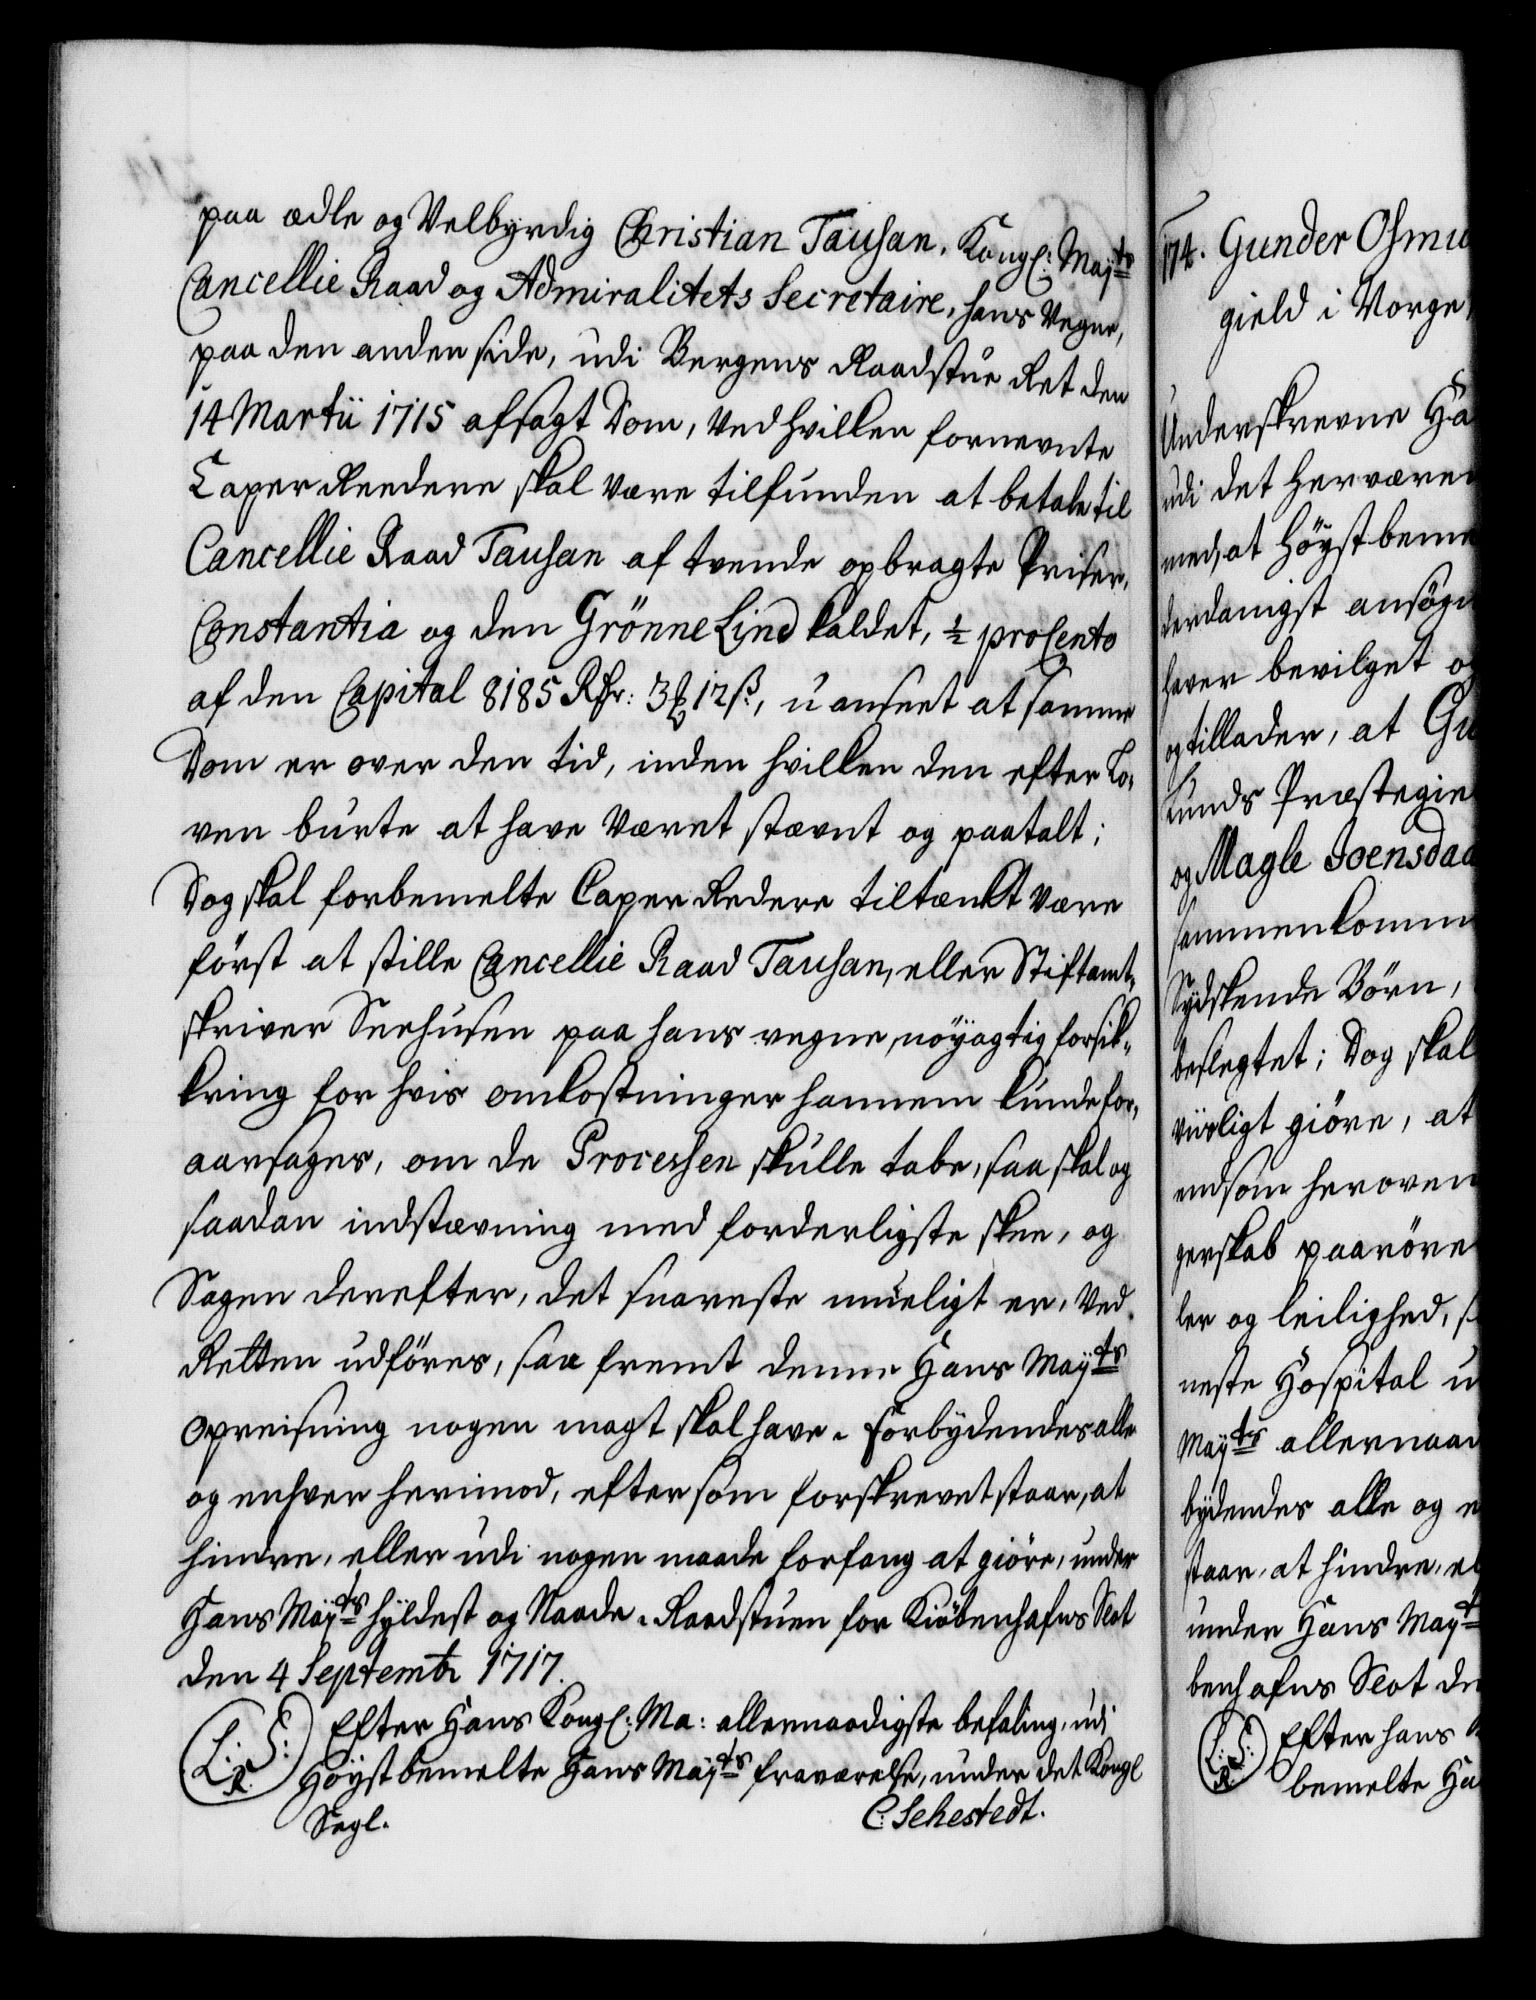 paa ædle og Velbyrdig Christian Tausan, Kongl: Mayts
Cancellie Raad og Admiralitets Secretaire, hans Vegne,
paa den anden side, udi Bergens Raadstue Ret den
14 Martii 1715 afsagt Dom, Ved hvilken fornevnte
Caper Reedere skal være tilfunden at betale til
Cancellie Raad Tausan af tvende opbragte Priser,
Constantia og den Grönne Lind kaldet, ½ pro Cento
af den Capital 8185 Rdr: 3 12 ß, uanseet at samme
Dom er over den tid, inden hvilken den efter Lo-
ven burte at have Været stævnt og paatalt;
Dog skal forbemelte Caper Redere tiltænkt være
först at stille Cancellie Raad Tausan, eller Stiftamt-
skriver Seehusen paa hans vegne, nöyagtig forsik-
kring for hvis omkostninger hannem kunde for-
aarsages, om de Processen skulle tabe, saa skal og
saadan indstævning med forderligste skee, og
Sagen derefter, det snareste mueligt er, Ved
Retten udföres, saa fremt denne Hans Mayts
Opreisning nogen magt skal have. Forbydendes alle
og enhver herimod, eftersom forskrevet staar, at
hindre, eller udi nogen maade forfang at giöre, under
Hans Mayts hyldest og Naade. Raadstuen for Kiöbenhafns Slot
den 4 Septembr 1717.
Efter Hans Kongl: Ma: allernaadigste befaling, udi
L: S: R.
Höystbemelte Hans Mayts fraværelse, under det Kongl
Segl.
C: Sehestedt.
174. Gunder Osmu
gield i Norge
Underskrevne Ha
udi det herværen
med, at Höystbeme
derdanigst ansögn
haver bevilget og
og tillader, at Gu
Lunds Præstegie
og Magle Joensdaa
sammenkomme
Sydskende Börn,
beslegtet; Dog skal
viisligt giöre, at
endsom heroven
gerskab paaröre
ler og leilighed, s
neste Hospital u
Mayts allernaa
bydendes alle og e
staar, at hindre, el
under Hans Mayt
benhafns Slot de
L: S: R.
Efter hans
bemelte Ha